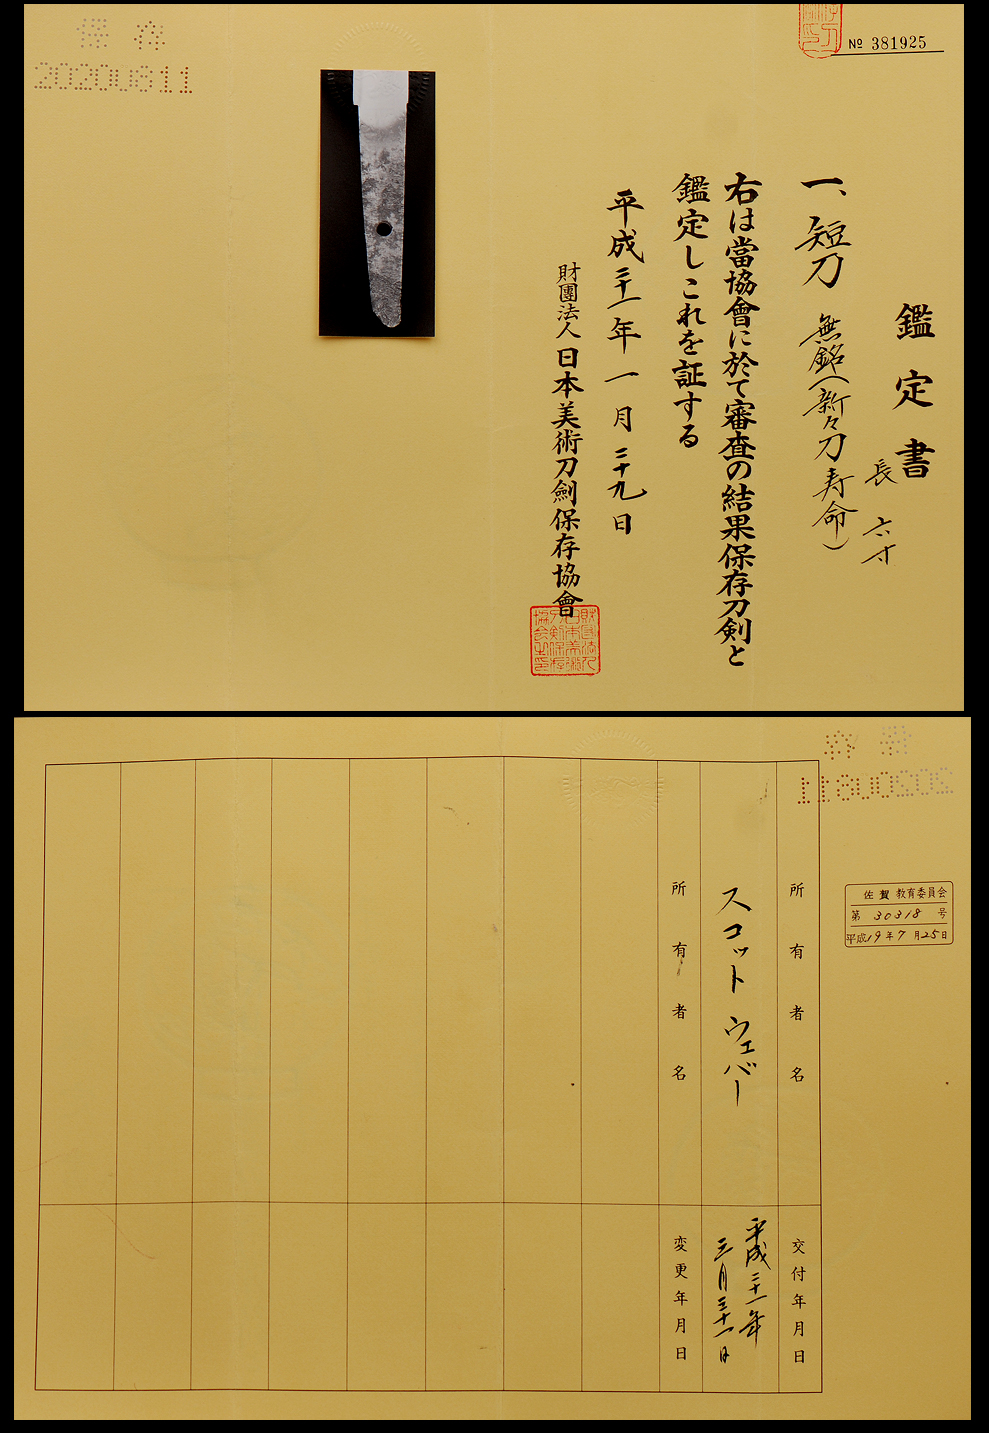 保存
No 381925
鑑定書
一、短刀 無銘(新々刀寿命)
長 六寸
右は當協會に於て審査の結果保存刀剣と
鑑定しこれを証する
平成二十一年一月二十九日
財團法人日本美術刀劍保存協會
佐賀 教育委員会
第 30318 号
平成19年7月25日
所有者名
交付年月日
スコット ウェバー
平成二十一年
三月三十一日
所有者名
変更年月日